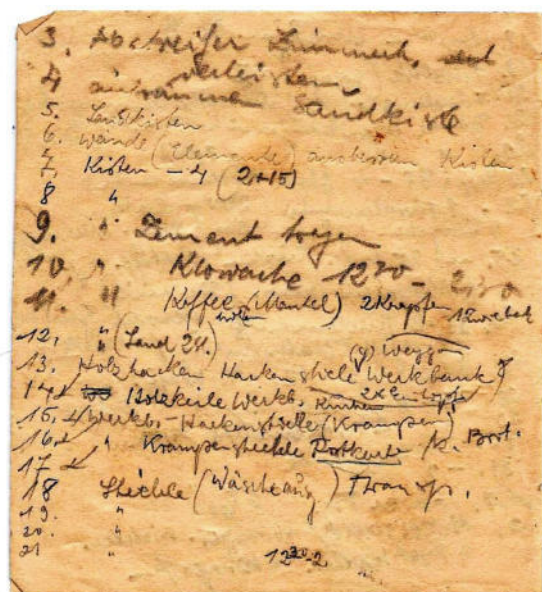 3. Abstreifer Zimmerth. und
verleisten
4 einräumen Sandkiste
5. Sandkisten
6. Wände (Elemente) ausbessern Kisten
7. Kisten - 4 (2+15)
8 "
9. " Zement tragen
10. " Klowache 12³⁰ - 2,30
11. " Koffee (Mantel) 2 Krapfen 1 Zwieback
holen
12. " (Sand 2 St.)
13. Holzhacken Hackenstiele Werkbank
14. Holzkeile Werkb. 2x Eintopf
15. Werkb. - Hackenstiele (Krampen)
16. " - Krampenstiele Postkarte /k. Brot.
17 "
18 Stiele (Wäscheausg) Transp.
19. "
20. "
21 "
12³⁰-2